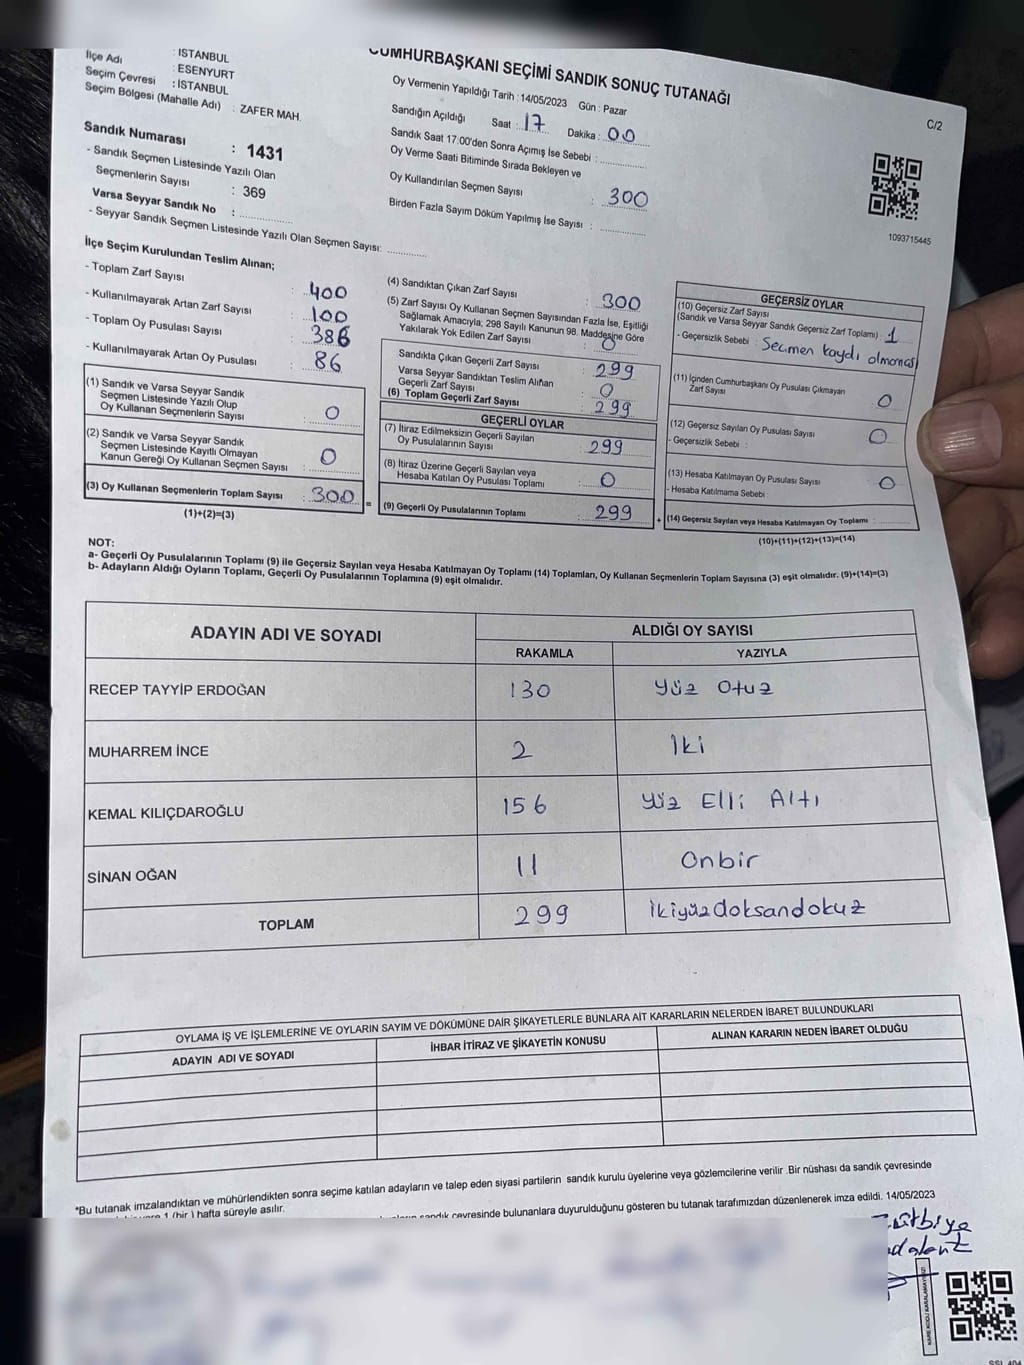 CUMHURBAŞKANI SEÇİMİ SANDIK SONUÇ TUTANAĞI
: İSTANBUL
İlçe Adı : ESENYURT
Seçim Çevresi : İSTANBUL
Seçim Bölgesi (Mahalle Adı) : ZAFER MAH.
Sandık Numarası : 1431
- Sandık Seçmen Listesinde Yazılı Olan
Seçmenlerin Sayısı : 369
Varsa Seyyar Sandık No :
- Seyyar Sandık Seçmen Listesinde Yazılı Olan Seçmen Sayısı:
Oy Vermenin Yapıldığı Tarih : 14/05/2023 Gün : Pazar
Sandığın Açıldığı Saat : 17 Dakika : 00
Sandık Saat 17:00'den Sonra Açımış İse Sebebi :
Oy Verme Saati Bitiminde Sırada Bekleyen ve
Oy Kullandırılan Seçmen Sayısı : 300
Birden Fazla Sayım Döküm Yapılmış İse Sayısı :
C/2
1093715445
İlçe Seçim Kurulundan Teslim Alınan;
- Toplam Zarf Sayısı : 400
- Kullanılmayarak Artan Zarf Sayısı : 100
- Toplam Oy Pusulası Sayısı : 386
- Kullanılmayarak Artan Oy Pusulası : 86
(1) Sandık ve Varsa Seyyar Sandık
Seçmen Listesinde Yazılı Olup
Oy Kullanan Seçmenlerin Sayısı : 0
(2) Sandık ve Varsa Seyyar Sandık
Seçmen Listesinde Kayıtlı Olmayan
Kanun Gereği Oy Kullanan Seçmen Sayısı : 0
(3) Oy Kullanan Seçmenlerin Toplam Sayısı : 300 =
(1)+(2)=(3)
(4) Sandıktan Çıkan Zarf Sayısı : 300
(5) Zarf Sayısı Oy Kullanan Seçmen Sayısından Fazla İse, Eşitliği
Sağlamak Amacıyla, 298 Sayılı Kanunun 98. Maddesine Göre
Yakılarak Yok Edilen Zarf Sayısı : 0
Sandıkta Çıkan Geçerli Zarf Sayısı : 299
Varsa Seyyar Sandıktan Teslim Alınan
Geçerli Zarf Sayısı : 0
(6) Toplam Geçerli Zarf Sayısı : 299
GEÇERLİ OYLAR
(7) İtiraz Edilmeksizin Geçerli Sayılan
Oy Pusulalarının Sayısı : 299
(8) İtiraz Üzerine Geçerli Sayılan veya
Hesaba Katılan Oy Pusulası Toplamı : 0
(9) Geçerli Oy Pusulalarının Toplamı : 299
GEÇERSİZ OYLAR
(10) Geçersiz Zarf Sayısı
(Sandık ve Varsa Seyyar Sandık Geçersiz Zarf Toplamı) : 1
- Geçersizlik Sebebi : Seçmen kaydı olmaması
(11) İçinden Cumhurbaşkanı Oy Pusulası Çıkmayan
Zarf Sayısı : 0
(12) Geçersiz Sayılan Oy Pusulası Sayısı : 0
- Geçersizlik Sebebi :
(13) Hesaba Katılmayan Oy Pusulası Sayısı : 0
- Hesaba Katılmama Sebebi :
+ (14) Geçersiz Sayılan veya Hesaba Katılmayan Oy Toplamı :
(10)+(11)+(12)+(13)=(14)
NOT:
a- Geçerli Oy Pusulalarının Toplamı (9) ile Geçersiz Sayılan veya Hesaba Katılmayan Oy Toplamı (14) Toplamları, Oy Kullanan Seçmenlerin Toplam Sayısına (3) eşit olmalıdır. (9)+(14)=(3)
b- Adayların Aldığı Oyların Toplamı, Geçerli Oy Pusulalarının Toplamına (9) eşit olmalıdır.
ADAYIN ADI VE SOYADI ALDIĞI OY SAYISI
RAKAMLA YAZIYLA
RECEP TAYYİP ERDOĞAN 130 Yüz Otuz
MUHARREM İNCE 2 İki
KEMAL KILIÇDAROĞLU 156 Yüz Elli Altı
SİNAN OĞAN 11 Onbir
TOPLAM 299 İkiyüzdoksandokuz
OYLAMA İŞ VE İŞLEMLERİNE VE OYLARIN SAYIM VE DÖKÜMÜNE DAİR ŞİKAYETLERLE BUNLARA AİT KARARLARIN NELERDEN İBARET BULUNDUKLARI
ADAYIN ADI VE SOYADI İHBAR İTİRAZ VE ŞİKAYETİN KONUSU ALINAN KARARIN NEDEN İBARET OLDUĞU
*Bu tutanak imzalandıktan ve mühürlendikten sonra seçime katılan adayların ve talep eden siyasi partilerin sandık kurulu üyelerine veya gözlemcilerine verilir .Bir nüshası da sandık çevresinde
1 (bir ) hafta süreyle asılır.
sandık çevresinde bulunanlara duyurulduğunu gösteren bu tutanak tarafımızdan düzenlenerek imza edildi. 14/05/2023